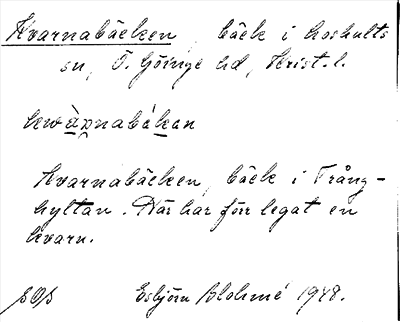 Kvarnabäcken, bäck i Loshults
sn, Ö. Göinge hd, Krist. l.
kwàrnabäkan
Kvarnabäcken, bäck i Trång-
hyltan. Där har förr legat en
kvarn.
Esbjörn Blohmé 1948.